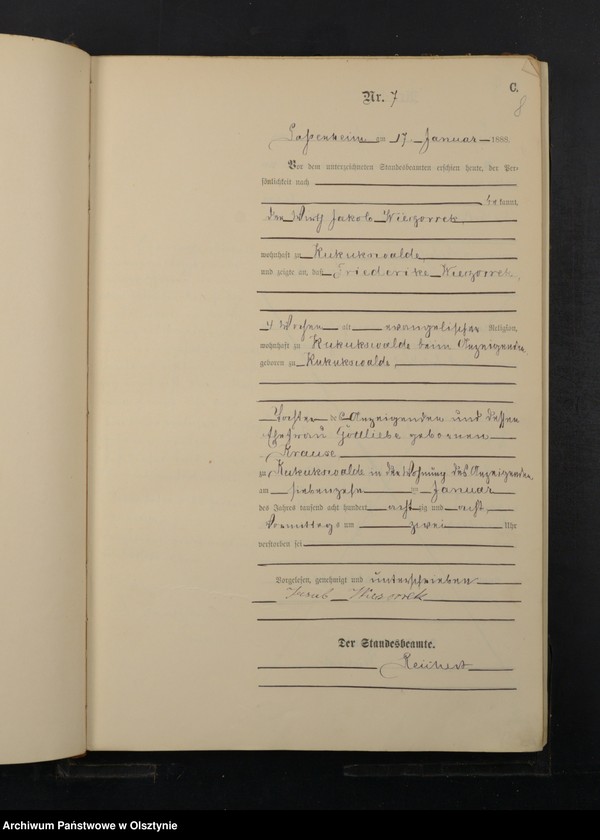 C.
8
Nr. 7
Passenheim am 17 Januar 1888.
Vor dem unterzeichneten Standesbeamten erschien heute, der Per-
sönlichkeit nach
bekannt,
den Wirth Jakob Wieczorrek,
wohnhaft zu Kukukswalde,
und zeigte an, daß Friederike Wieczorrek,
4 Wochen alt evangelischer Religion,
wohnhaft zu Kukukswalde beim Anzeigenden,
geboren zu Kukukswalde,
Tochter des Anzeigenden und dessen
Ehefrau Gottliebe geborenen
Krause
zu Kukukswalde in der Wohnung des Anzeigenden,
am siebenzehn ten Januar
des Jahres tausend acht hundert acht zig und acht,
Vormittags um zwei Uhr
verstorben sei
Vorgelesen, genehmigt und unterschrieben
Jacob Wieszorrek
Der Standesbeamte.
Reichert
Archiwum Państwowe w Olsztynie